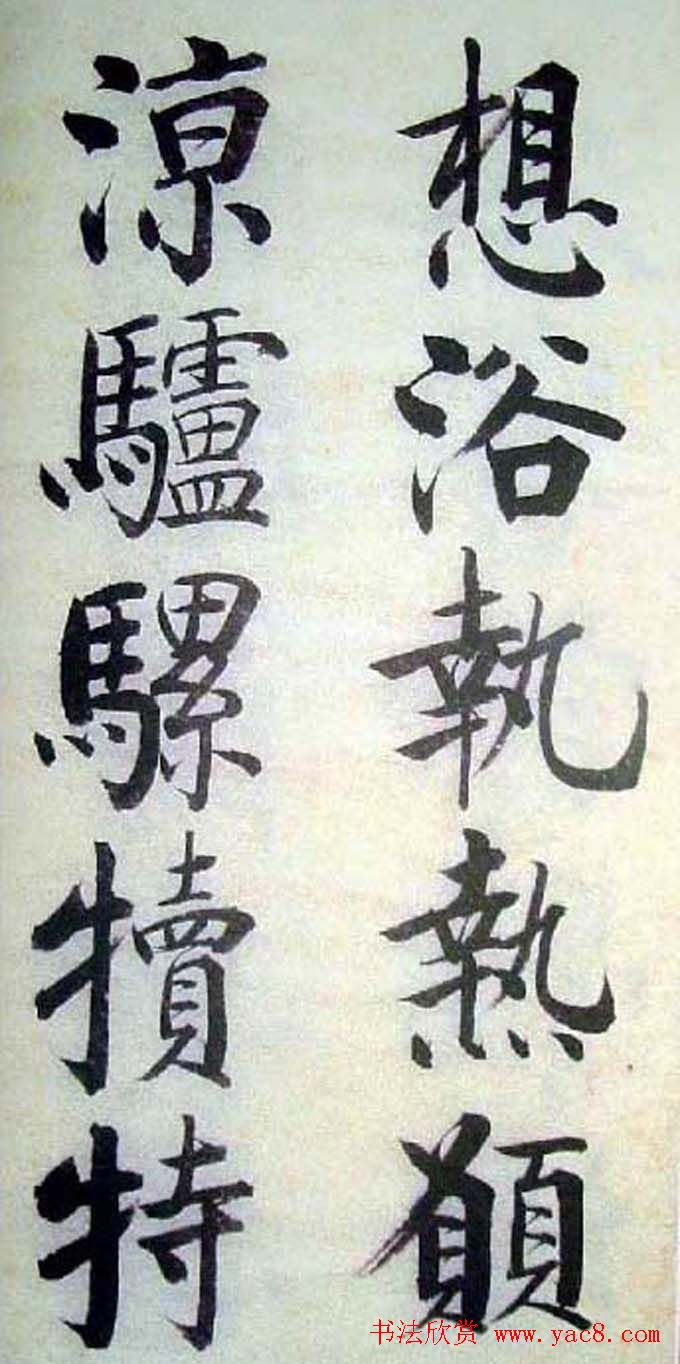 想浴執熱願
涼驢騾犢特
书法欣赏 www.yac8.com